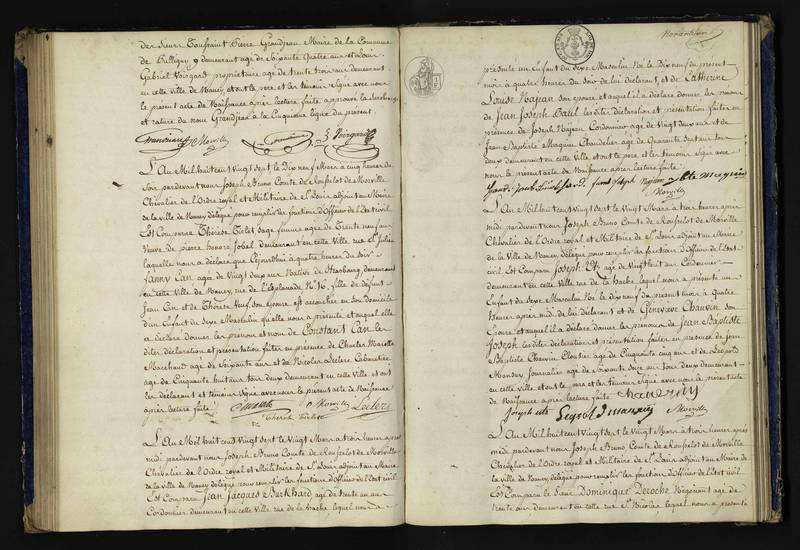 der Sieurs Toussaint Pierre Grandjean Maire de la Commune
de Pulligny y demeurant agé de Soixante Quatre ans et Louis
Gabriel Voirgard propriétaire agé de trente trois ans demeurant
en cette ville de Nancy et ont le pere et les témoins Signé avec nous
le présent acte de Naissance après lecture faite approuvé la surcharge
et rature du nom Grandjean à la Cinquieme ligne du présent.
Morville
L'An Mil huit cent Vingt Sept le Dix neuf Mars à cinq heures du
Soir pardevant nous Joseph Bruno Comte de Rousselot de Morville
Chevalier de l'Ordre royal et Militaire de St Louis adjoint au Maire
de la ville de Nancy délégué pour remplir les fonctions d'Officier de l'Etat civil
Est Comparue Thérèse Tirlet Sage femme agée de Trente neuf ans
Veuve de pierre honoré Jobel demeurant en cette Ville rue St Julien
laquelle nous a déclaré que Cejourdhui à quatre heures du Soir
fanny Can agée de Vingt deux ans Native de Strasbourg demeurant
en cette Ville de Nancy, rue de l'Esplanade No 16, fille de défunt
Jean Can et de Thérèse Neuf son épouse est accouchée en Son domicile
d'un Enfant du Sexe Masculin qu'elle nous a présenté et auquel elle
a déclaré donner les prénom et nom de Constant Can les
dites déclaration et présentation faites en présence de Charles Marotte
Marchand agé de Soixante ans et de Nicolas Leclerc Cabaretier
agé de Cinquante huit ans tous deux demeurant en cette Ville et ont
les déclarant et témoins Signé avec nous le présent acte de Naissance
après lecture faite
Morville Leclerc
L'An Mil huit cent Vingt Sept le Vingt Mars à trois heures après
midi pardevant nous Joseph Bruno Comte de Rousselot de Morville
Chevalier de l'Ordre royal et Militaire de St Louis adjoint au Maire
de la ville de Nancy délégué pour remplir les fonctions d'Officier de l'Etat civil
Est Comparu Jean Jacques Burkhard agé de trente un ans
Cordonnier demeurant en cette Ville rue de la hache lequel nous a
présenté un Enfant du Sexe Masculin Né le Dix neuf du présent
mois à quatre heures du Soir de lui déclarant et de Catherine
Louise Hajean Son épouse et auquel il a déclaré donner les prénoms
de Jean Joseph les dites déclaration et présentation faites en
présence de Joseph Hajean Cordonnier agé de Vingt deux ans et de
Jean Baptiste Maguin Chandelier agé de Quarante Sept ans tous
deux demeurant en cette Ville et ont le pere et les témoins Signé avec
nous le présent acte de Naissance après lecture faite
Morville
L'An Mil huit cent Vingt Sept le Vingt Mars à trois heures après
midi pardevant nous Joseph Bruno Comte de Rousselot de Morville
Chevalier de l'Ordre royal et Militaire de St Louis adjoint au Maire
de la Ville de Nancy délégué pour remplir les fonctions d'Officier de l'Etat
civil Est Comparu Joseph agé de Vingt huit ans Cordonnier
demeurant en cette Ville rue de la hache lequel nous a présenté un
Enfant du Sexe Masculin Né le Dix neuf du présent mois à Quatre
heures après midi de lui déclarant et de Geneviève Chauvin Son
épouse et auquel il a déclaré donner les prénoms de Jean Baptiste
Joseph les dites déclaration et présentation faites en présence de Jean
Baptiste Chauvin Cloutier agé de Cinquante cinq ans et de Léopold
Mansuy Journalier agé de Soixante onze ans tous deux demeurant
en cette Ville et ont le pere et les témoins Signé avec nous le présent acte
de Naissance après lecture faite
Morville
L'An Mil huit cent Vingt Sept le Vingt Mars à trois heures après
midi pardevant nous Joseph Bruno Comte de Rousselot de Morville
Chevalier de l'Ordre royal et Militaire de St Louis adjoint au Maire de
la Ville de Nancy délégué pour remplir les fonctions d'Officier de l'Etat civil
Est Comparu le Sieur Dominique Deroche Négociant agé de
trente ans demeurant en cette Ville rue St Nicolas lequel nous a présenté